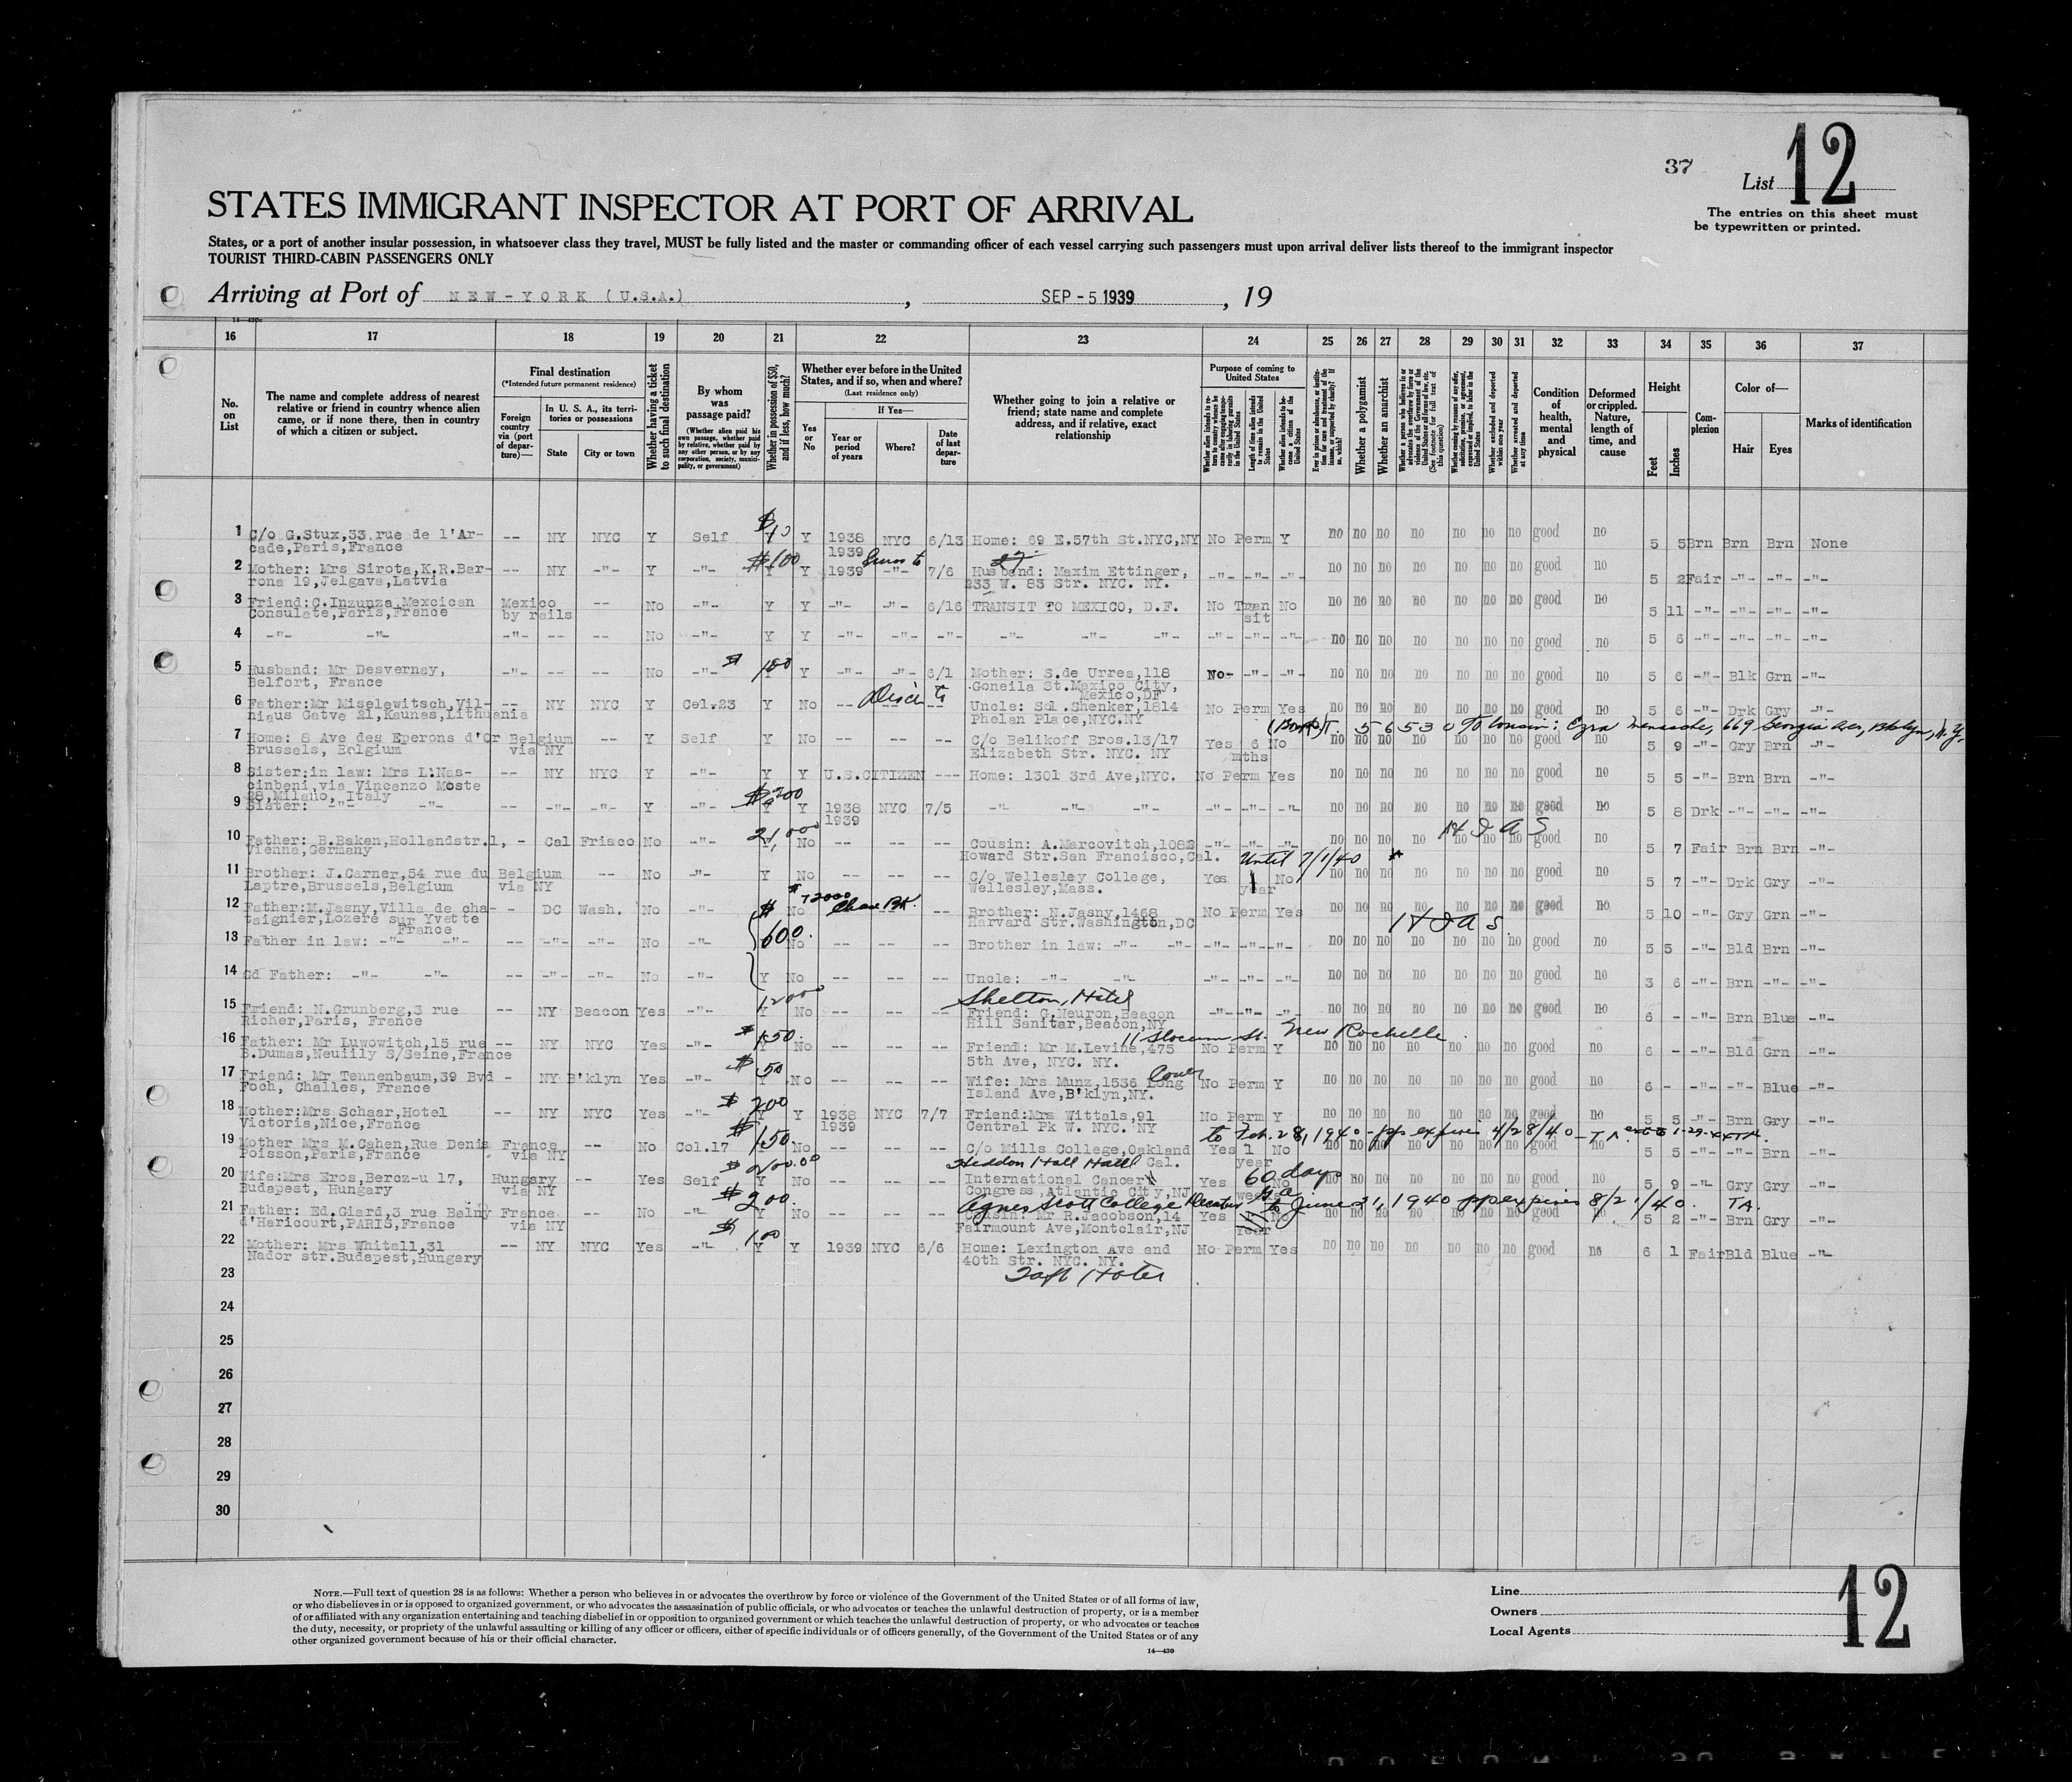 37
List 12
The entries on this sheet must
be typewritten or printed.
STATES IMMIGRANT INSPECTOR AT PORT OF ARRIVAL
States, or a port of another insular possession, in whatsoever class they travel, MUST be fully listed and the master or commanding officer of each vessel carrying such passengers must upon arrival deliver lists thereof to the immigrant inspector
TOURIST THIRD-CABIN PASSENGERS ONLY
Arriving at Port of NEW-YORK (U.S.A.), SEP -5 1939, 19
16 17 18 19 20 21 22 23 24 25 26 27 28 29 30 31 32 33 34 35 36 37
No. on List
The name and complete address of nearest relative or friend in country whence alien came, or if none there, then in country of which a citizen or subject.
Final destination
(*Intended future permanent residence)
Foreign country via (port of departure)—
In U. S. A., its territories or possessions
State
City or town
Whether having a ticket to such final destination
By whom was passage paid?
(Whether alien paid his own passage, whether paid by relative, whether paid by any other person, or by any corporation, society, municipality, or government)
Whether in possession of $50, and if less, how much?
Whether ever before in the United States, and if so, when and where?
(Last residence only)
Yes or No
If Yes—
Year or period of years
Where?
Date of last departure
Whether going to join a relative or friend; state name and complete address, and if relative, exact relationship
Purpose of coming to United States
Whether a polygamist
Whether an anarchist
Condition of health, mental and physical
Deformed or crippled. Nature, length of time, and cause
Height
Feet
Inches
Complexion
Color of—
Hair
Eyes
Marks of identification
1 C/o G.Stux,33 rue de l'Ar- -- NY NYC Y Self $10 Y 1938 NYC 6/13 Home: 69 E.57th St.NYC,NY No Perm Y no no no no no no no good no 5 5 Brn Brn Brn None
cade,Paris,France 1939
2 Mother: Mrs Sirota,K.R.Bar- -- NY -"- Y -"- $100 Y 1939 -"- 7/6 Husband: Maxim Ettinger, -"- -"- -"- no no no no no no no good no 5 2 Fair -"- -"- -"-
rona 19,Jelgava,Latvia 233 W. 83 Str. NYC. NY.
3 Friend:C.Inzunza Mexcican Mexico -- No -"- Y Y -"- -"- 6/16 TRANSIT TO MEXICO, D.F. No Tran No no no no no no no no good no 5 11 -"- -"- -"- -"-
Consulate,Paris,France by rails sit
4 -"- -"- -"- -- -- No -"- Y Y -"- -"- -"- -"- -"- -"- -"- -"- -"- no no no no no no no good no 5 6 -"- -"- -"- -"-
5 Husband: Mr Desverney, -"- -- -- No -"- $100 Y -"- -"- 6/1 Mother: S.de Urrea,118 No- -"- -"- no no no no no no no good no 5 6 -"- Blk Grn -"-
Belfort, France Goneila St.Mexico City,
Mexico,DF
6 Father:Mr Miselewitsch,Vil- -- NY NYC Y Col.23 Y No -- -- -- Uncle: Sol.Shenker,1814 No Perm Yes no no no no no no no good no 5 6 -"- Drk Gry -"-
niaus Gatve 21,Kaunas,Lithuenia Phelan Place,NYC.NY
T. 56530 To cousin: Ezra Menasche, 669 Georgia Ave, Bklyn, N.Y.
7 Home: 8 Ave des Eperons d'Or Belgium -- Y Self Y No -- -- -- C/o Belikoff Bros.13/17 Yes 6 No no no no no no no no good no 5 9 -"- Gry Brn -"-
Brussels, Belgium via NY Elizabeth Str. NYC. NY mths
8 Sister in law: Mrs L.Nas- -- NY NYC Y -"- Y Y U.S.CITIZEN --- Home: 1301 3rd Ave,NYC. No Perm Yes no no no no no no no good no 5 5 -"- Brn Brn -"-
cinbeni,via Vincenzo Moste
28,Milano, Italy
9 Sister: -"- -"- -- -"- -"- Y -"- $200 Y 1938 NYC 7/5 -"- -"- -"- -"- -"- -"- no no no no no no no good no 5 8 Drk -"- -"- -"-
1939
HIAS
10 Father: B.Baken,Hollandstr.1, - Cal Frisco No -"- No -- -- -- Cousin: A.Marcovitch,1082 -"- -"- -"- no no no no no no no good no 5 7 Fair Brn Brn -"-
Vienna,Germany Howard Str.San Francisco,Cal.
Until 7/1/40
11 Brother: J.Carner,54 rue du Belgium -- No -"- Y No -- -- -- C/o Wellesley College, Yes 1 No no no no no no no no good no 5 7 -"- Drk Gry -"-
Laptre,Brussels,Belgium via NY Wellesley,Mass. year
12 Father:M.Jasny,Villa de cha- - DC Wash. No -"- $ No Chase Bk. -- Brother: N.Jasny,1468 No Perm Yes no no no no no no no good no 5 10 -"- Gry Grn -"-
taignier,Lozere sur Yvette Harvard Str.Washington,DC
France
HIAS
13 Father in law: -"- -"- -- -"- -"- No -"- 600. No -- -- -- Brother in law: -"- -"- -"- -"- -"- no no no no no no no good no 5 5 -"- Bld Brn -"-
14 Gd Father: -"- -"- -- -"- -"- No -"- Y No -- -- -- Uncle: -"- -"- -"- -"- -"- no no no no no no no good no 3 6 -"- Brn -"- -"-
Shelton, Hotel
15 Friend: N.Grunberg,3 rue -- NY Beacon Yes -"- Y No -- -- -- Friend: G.Meuron,Beacon -"- -"- -"- no no no no no no no good no 6 - -"- Brn Blue -"-
Richer,Paris, France Hill Sanitar,Beacon,NY
11 Slocum St. New Rochelle
16 Father: Mr Luwowitch,15 rue -- NY NYC Yes -"- $150. No -- -- -- Friend: Mr M.Levine,475 No Perm Y no no no no no no no good no 6 - -"- Bld Grn -"-
B.Dumas,Neuilly S/Seine,France 5th Ave, NYC. NY.
17 Friend: Mr Tennenbaum,39 Bvd - NY B'klyn Yes -"- $50 No -- -- -- Wife: Mrs Munz,1536 Long No Perm Y no no no no no no no good no 6 - -"- -"- Blue -"-
Foch, Challes, France Island Ave,B'klyn,NY.
18 Mother:Mrs Schaar,Hotel -- NY NYC Yes -"- $200 Y 1938 NYC 7/7 Friend:Mrs Wittals,91 No Perm Y no no no no no no no good no 5 5 -"- Brn Gry -"-
Victoria,Nice,France 1939 Central Pk W. NYC. NY
to Feb. 28, 1940 - pp expires 4/28/40 - TA
19 Mother Mrs M.Cahen,Rue Denis France -- No Col.17 $150. No -- -- -- C/o Mills College,Oakland Yes 1 No no no no no no no no good no 5 5 -"- -"- Brn -"-
Poisson,Paris,France via NY Cal. year
20 Wife:Mrs Eros,Bercz-u 17, Hungary -- Yes Self $200.00 Y No -- -- -- International Cancer Yes 60 days No no no no no no no no good no 5 9 -"- Gry Gry -"-
Budapest, Hungary via NY Congress,Atlantic City,NJ weeks
Agnes Scott College Decatur Ga to June 21, 1940 pp expires 8/21/40. TA.
21 Father: Ed.Giard,3 rue Balny France -- No -"- $200. Y No -- -- -- Cousin: Mr R.Jacobson,14 Yes No no no no no no no no good no 5 2 -"- Brn Gry -"-
d'Haricourt,PARIS,France via NY Fairmount Ave,Montclair,NJ year
22 Mother: Mrs Whitall,31 -- NY NYC Yes -"- $100 Y Y 1939 NYC 6/6 Home: Lexington Ave and No Perm Yes no no no no no no no good no 6 1 Fair Bld Blue -"-
Nador str.Budapest,Hungary 40th Str. NYC. NY.
23 Taft Hotel
24
25
26
27
28
29
30
NOTE.—Full text of question 28 is as follows: Whether a person who believes in or advocates the overthrow by force or violence of the Government of the United States or of all forms of law,
or who disbelieves in or is opposed to organized government, or who advocates the assassination of public officials, or who advocates or teaches the unlawful destruction of property, or is a member
of or affiliated with any organization entertaining and teaching disbelief in or opposition to organized government or which teaches the unlawful destruction of property, or who advocates or teaches
the duty, necessity, or propriety of the unlawful assaulting or killing of any officer or officers, either of specific individuals or of officers generally, of the Government of the United States or of any
other organized government because of his or their official character.
14—430
Line
Owners
Local Agents
12